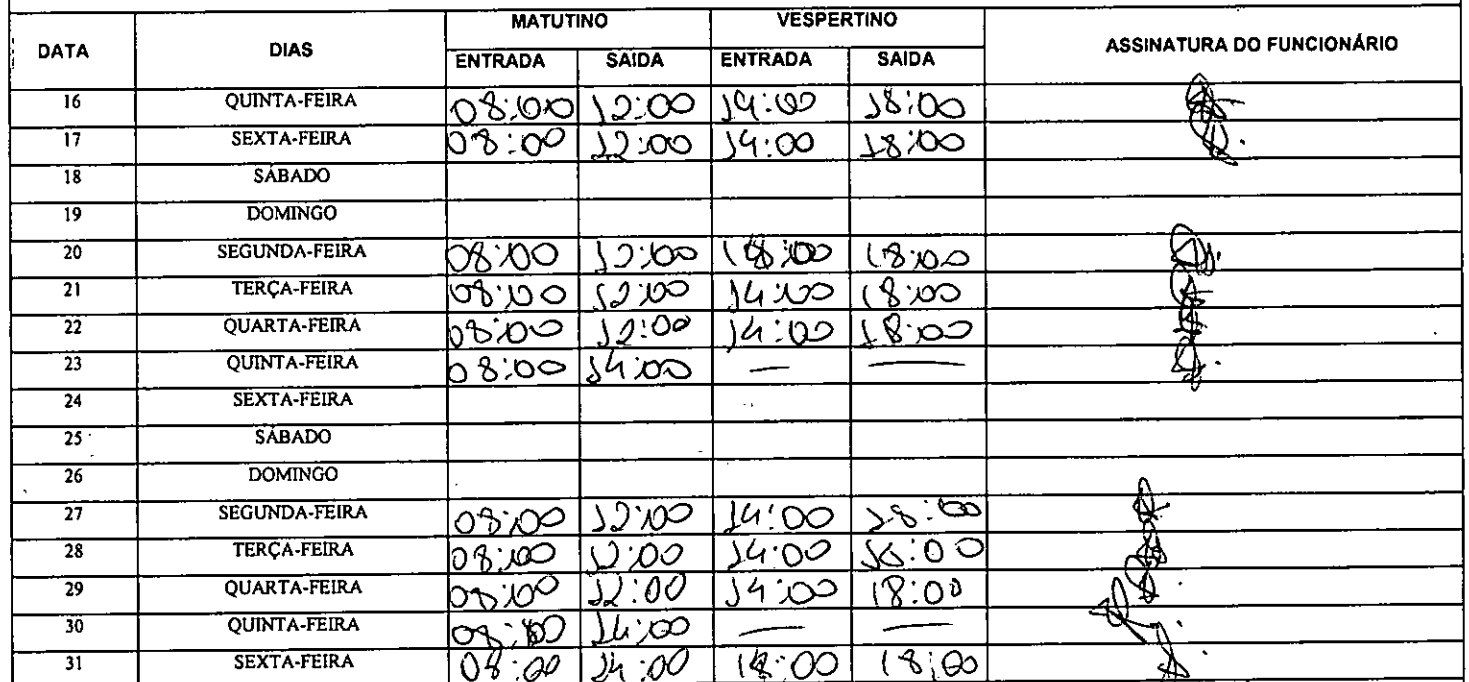 MATUTINO VESPERTINO
DATA DIAS ENTRADA SAIDA ENTRADA SAIDA ASSINATURA DO FUNCIONÁRIO
16 QUINTA-FEIRA 08:00 12:00 14:00 18:00
17 SEXTA-FEIRA 08:00 12:00 14:00 18:00
18 SÁBADO
19 DOMINGO
20 SEGUNDA-FEIRA 08:00 12:00 18:00
21 TERÇA-FEIRA 08:00 12:00 14:00 18:00
22 QUARTA-FEIRA 08:00 12:00 14:00 18:00
23 QUINTA-FEIRA 08:00 14:00 — —
24 SEXTA-FEIRA
25 SÁBADO
26 DOMINGO
27 SEGUNDA-FEIRA 08:00 12:00 14:00 18:00
28 TERÇA-FEIRA 08:00 12:00 14:00
29 QUARTA-FEIRA 08:00 12:00 14:00 18:00
30 QUINTA-FEIRA 08:00 14:00 — —
31 SEXTA-FEIRA 08:00 14:00 18:00